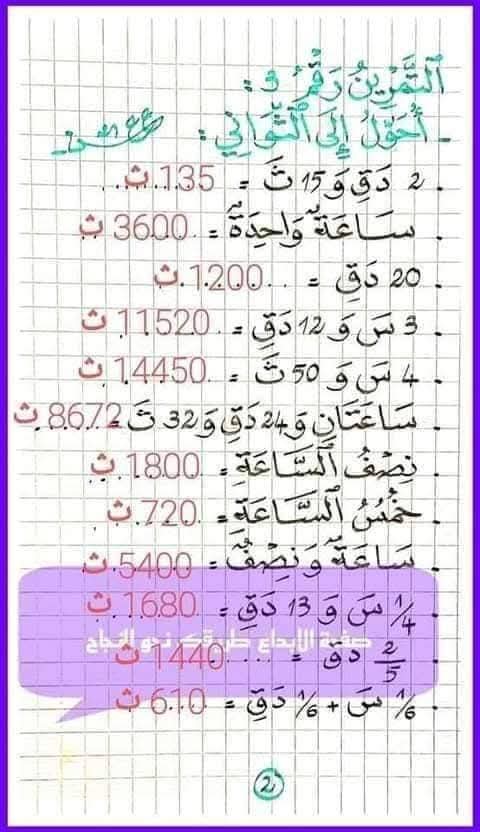 اَلتَّمْرِينُ رَقْمُ 3 :
- أُحَوِّلُ إِلَى الثَّوَانِي :
. 2 دَقِ وَ 15 ثَ = 135 ث
. سَاعَةٌ وَاحِدَةٌ = 3600 ث
. 20 دَقِ = 1200 ث
. 3 سَ وَ 12 دَقِ = 11520 ث
. 4 سَ وَ 50 ثَ = 14450 ث
. سَاعَتَانِ وَ 24 دَقِ وَ 32 ثَ = 8672 ث
. نِصْفُ اَلسَّاعَةِ = 1800 ث
. خُمُسُ اَلسَّاعَةِ = 720 ث
. سَاعَةٌ وَنِصْفٌ = 5400 ث
. 1/4 سَ وَ 13 دَقِ = 1680 ث
صفحة الإبداع طريقك نحو النجاح
. 2/5 دَقِ = 1440 ث
. 1/6 سَ + 1/6 دَقِ = 610 ث
2